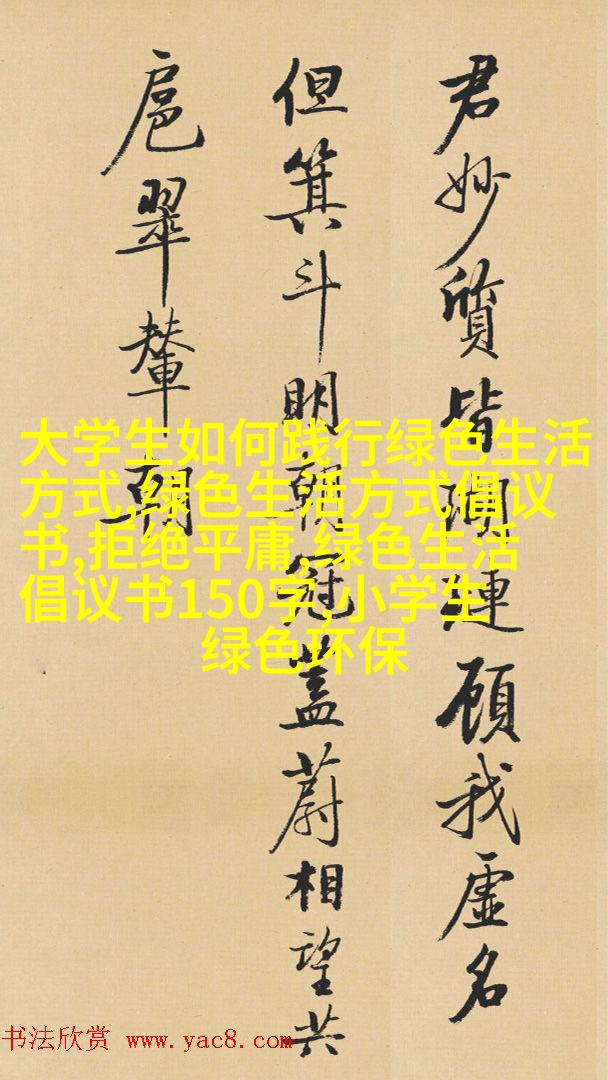 君妙质皆瑚琏顾我虚名
但箕斗明朝冠盖蔚相望共
扈翠辇朝
大学生如何践行绿色生活
方式,绿色生活方式倡议
书,拒绝平庸,绿色生活
倡议书150字,小学生
绿色环保
书法欣赏 www.yac8.com